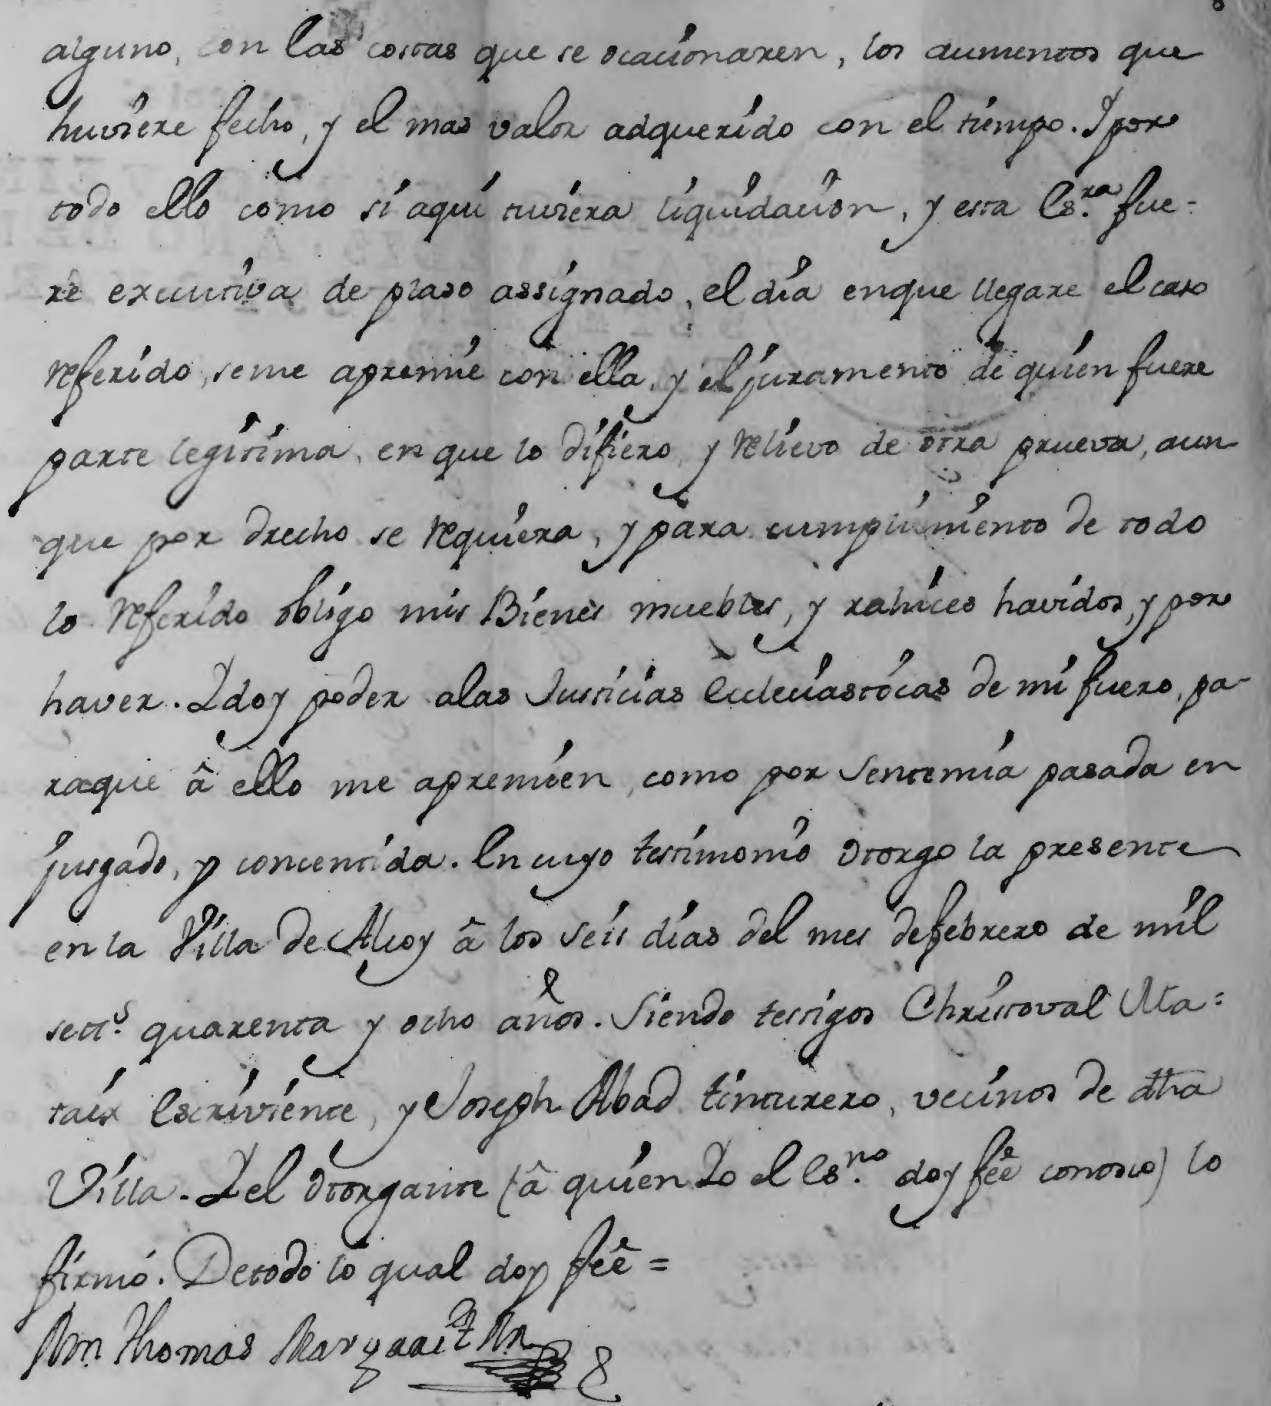 alguno, con las costas que se ocacionaren, los aumentos que
huviere fecho, y el mas valor adquerido con el tiempo. Y por
todo ello como si aqui tuviera liquidacion, y esta Es.ra fue-
re executiva de plaso assignado, el dia enque llegare el caso
referido, seme apremie con ella, y el juramento de quien fuere
parte legitima, en que lo difiero, y relievo de otra prueva, aun
que por drecho se requiera, y para cumplimiento de todo
lo referido obligo mis Bienes muebles, y rahices havidos, y por
haver. Y doy poder alas Justicias Ecleciasticas de mi fuero, pa-
raque â ello me apremien, como por Sentencia pasada en
jusgado, y concentida. En cuyo testimonio otorgo la presente
en la Villa de Alcoy â los seis dias del mes defebrero de mil
sett.s quarenta y ocho años. Siendo testigos Christoval Ma=
taix Escriviente, y Joseph Abad tinturero, vecinos de dha
Villa. Y el otorgante (â quien Yo el Es.no doy feê conosco) lo
firmó. Detodo lo qual doy feê =
Thomas